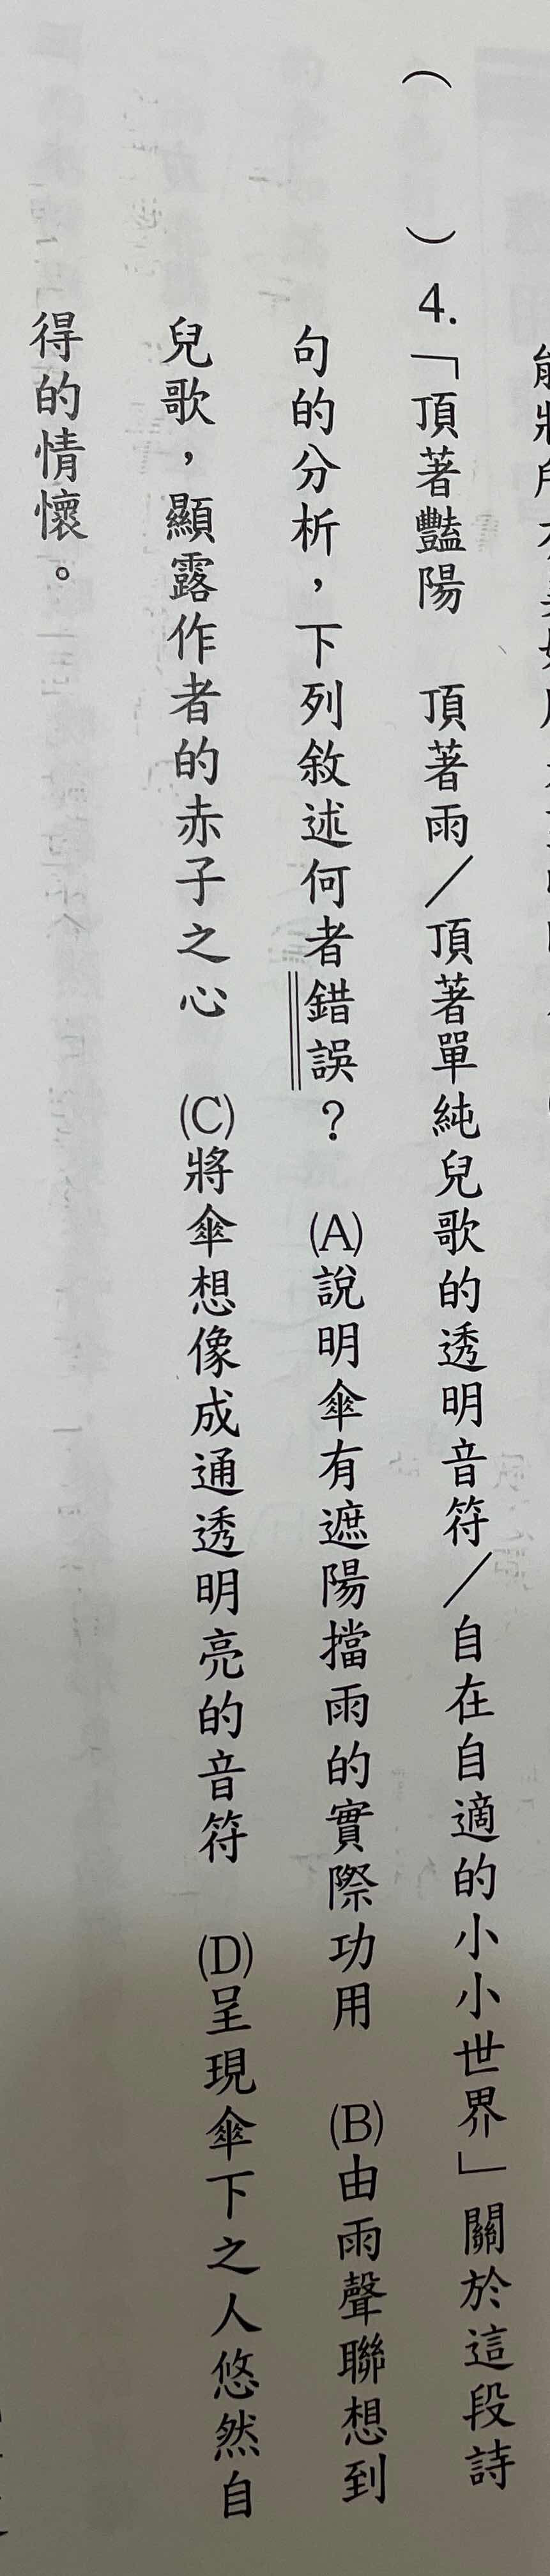 （　　）4.「頂著豔陽　頂著雨／頂著單純兒歌的透明音符／自在自適的小小世界」關於這段詩
句的分析，下列敘述何者錯誤？　(A)說明傘有遮陽擋雨的實際功用　(B)由雨聲聯想到
兒歌，顯露作者的赤子之心　(C)將傘想像成通透明亮的音符　(D)呈現傘下之人悠然自
得的情懷。